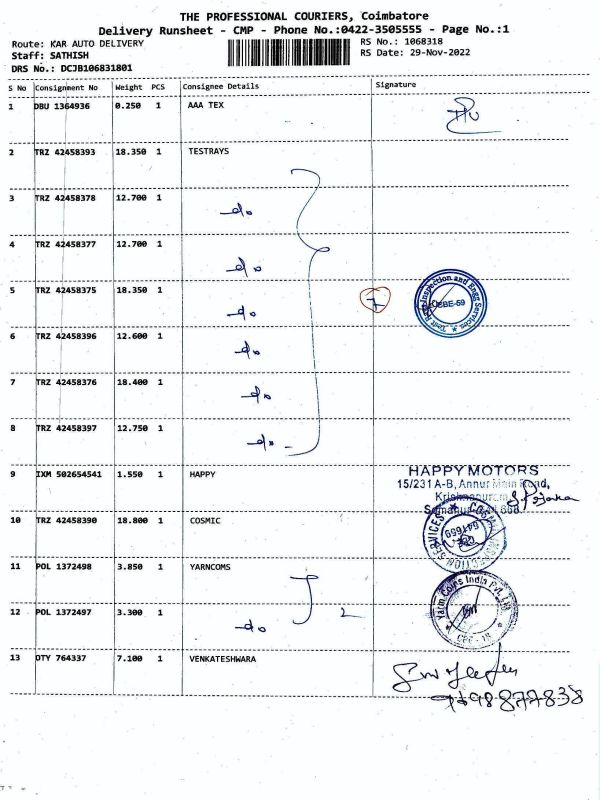 THE PROFESSIONAL COURIERS, Coimbatore
Delivery Runsheet - CMP - Phone No.:0422-3505555 - Page No.:1
Route: KAR AUTO DELIVERY
Staff: SATHISH
DRS No.: DCJB106831801
RS No.: 1068318
RS Date: 29-Nov-2022
S No Consignment No Weight PCS Consignee Details Signature
1 DBU 1364936 0.250 1 AAA TEX
2 TRZ 42458393 18.350 1 TESTRAYS
3 TRZ 42458378 12.700 1 do
4 TRZ 42458377 12.700 1 do
5 TRZ 42458375 18.350 1 do 7
6 TRZ 42458396 12.600 1 do
7 TRZ 42458376 18.400 1 do
8 TRZ 42458397 12.750 1 do
9 IXM 502654541 1.550 1 HAPPY
HAPPY MOTORS
15/231 A-B, Annur Main Road,
Krishnapuram
10 TRZ 42458390 18.800 1 COSMIC
COSMIC INSPECTION SERVICES
11 POL 1372498 3.850 1 YARNCOMS
Yarn Coms India Pvt. Ltd
12 POL 1372497 3.300 1 do 2
13 OTY 764337 7.100 1 VENKATESHWARA